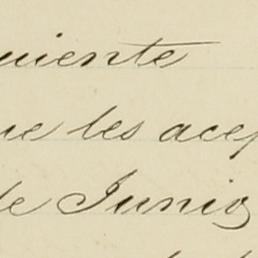 uiente
ue les acep
de Junio